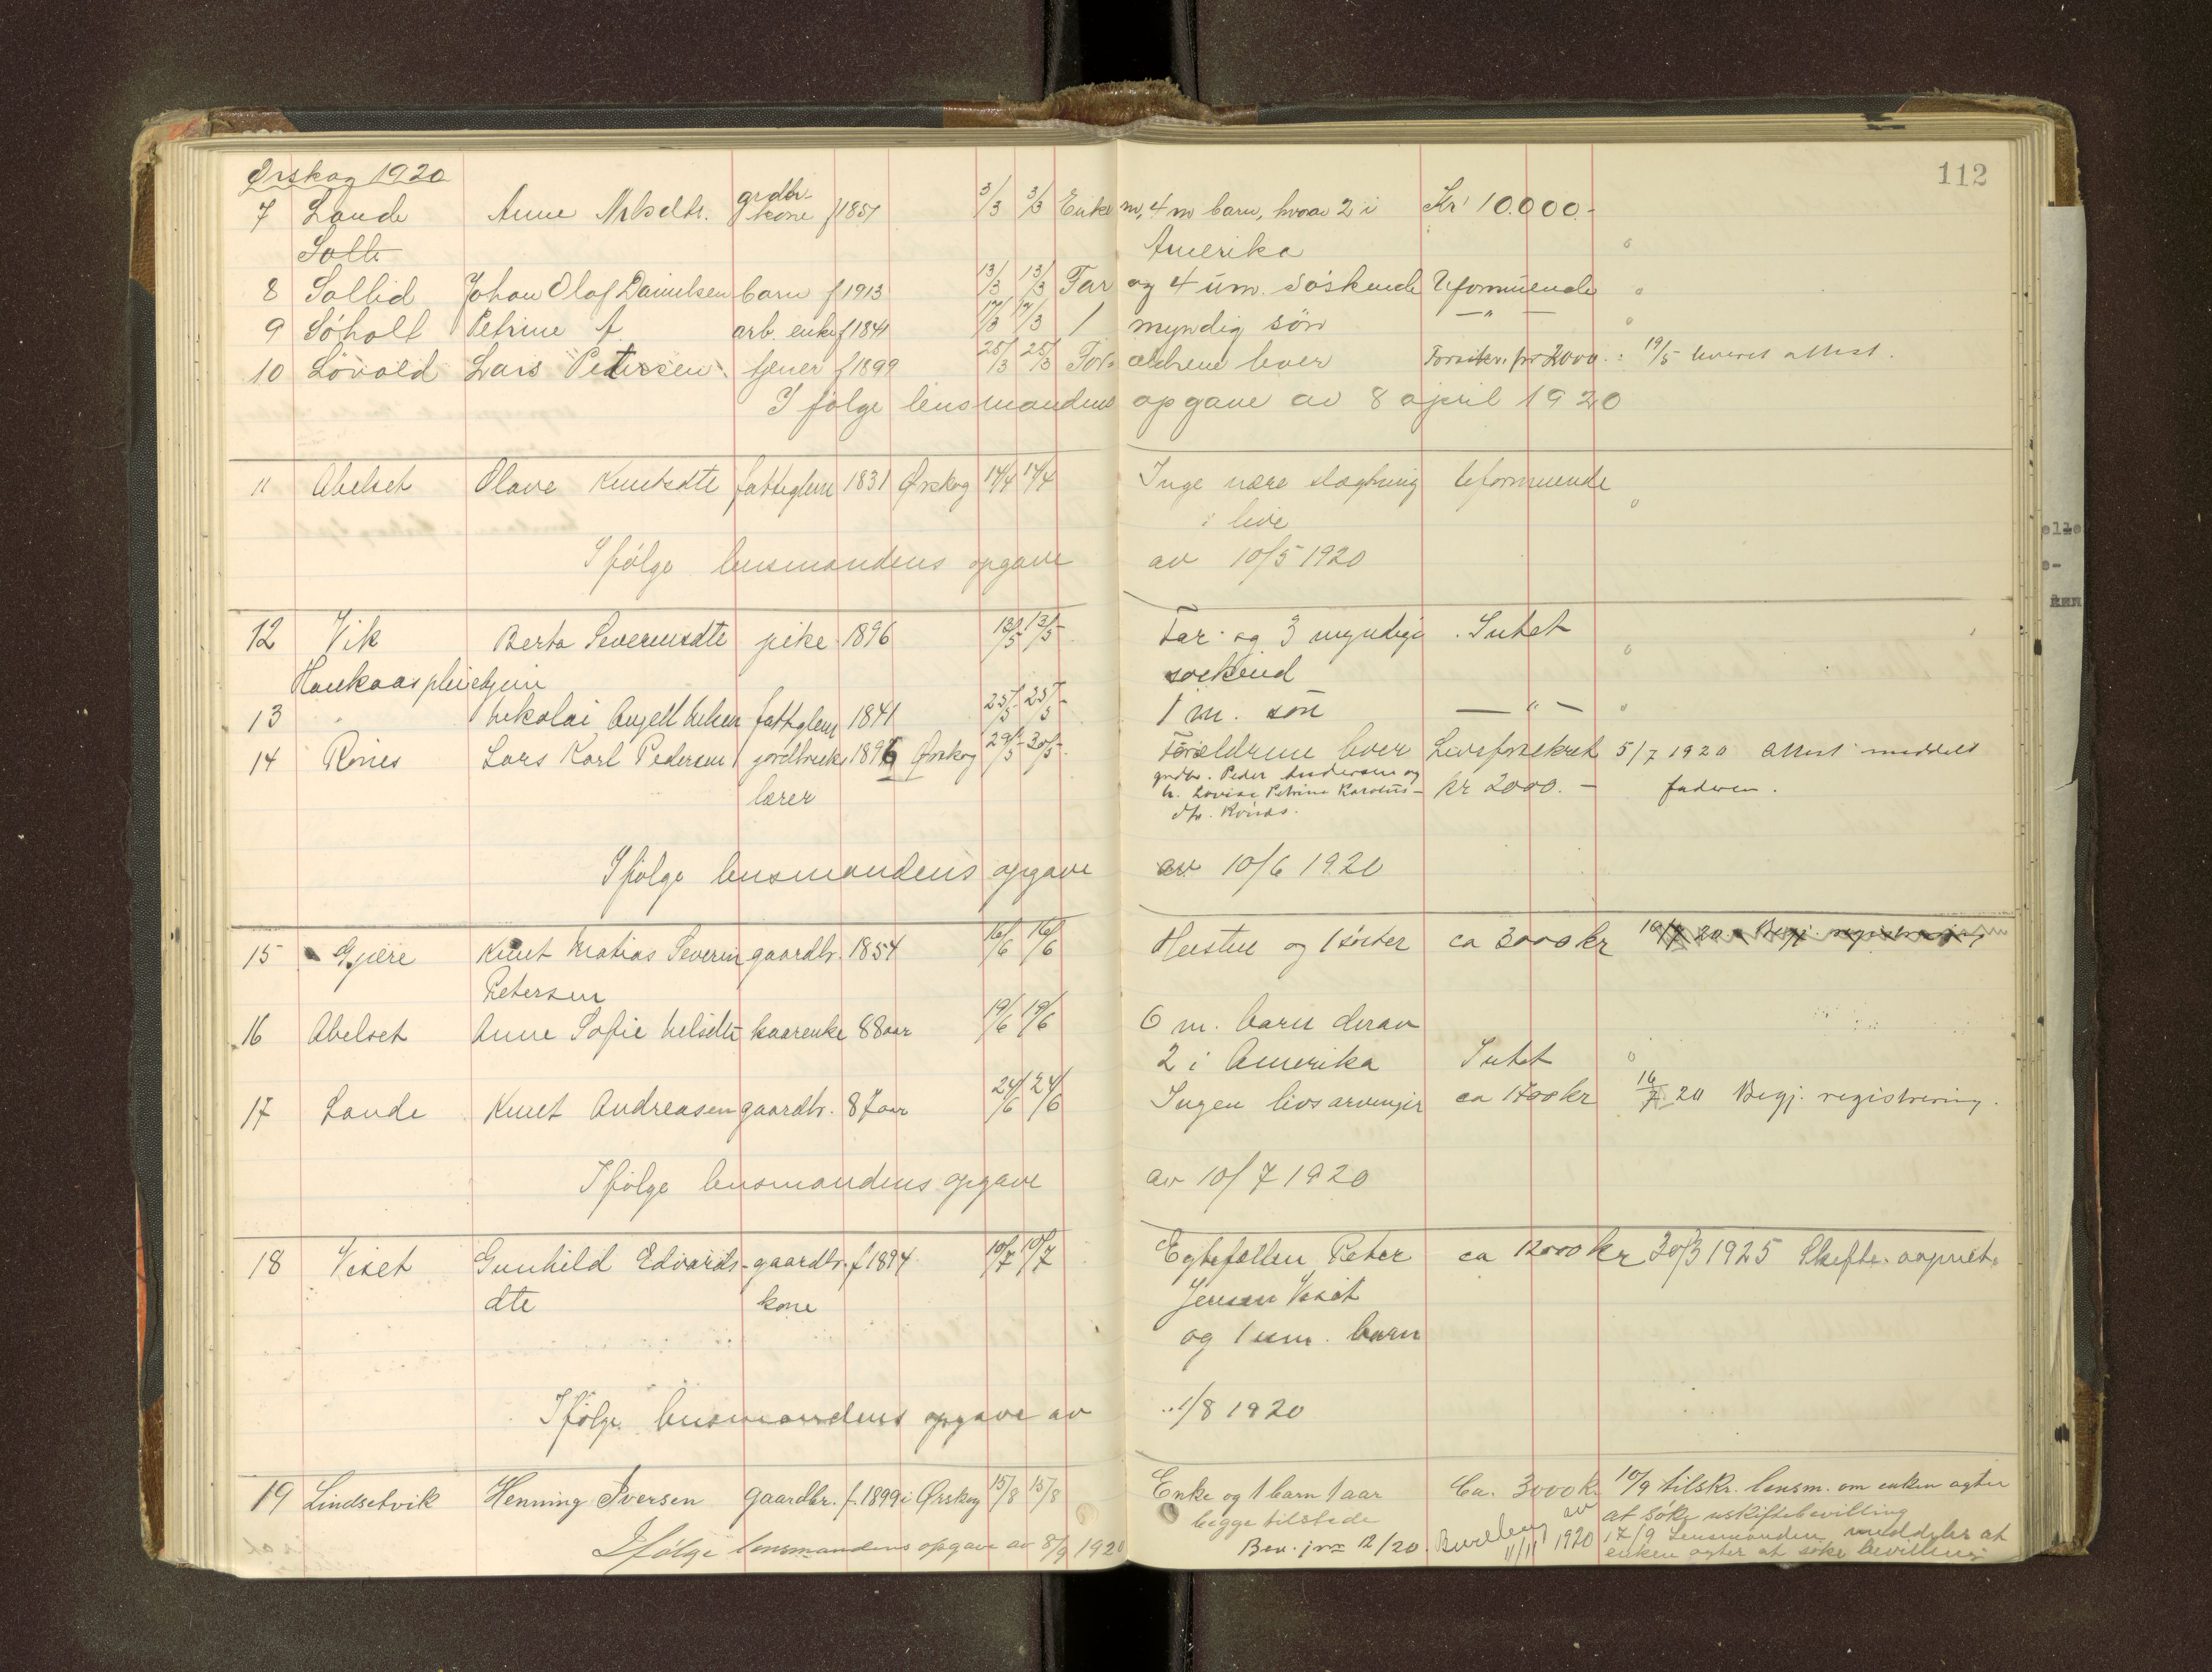 112
Ørskog 1920
7 Lande Anne Nilsdtr. grdbr. kone f 1851 3/3 3/3 Enke m, 4 m barn, hvorav 2 i Kr 10.000.-
Solli Amerika
8 Sollid Johan Olaf Danielsen barn f 1913 13/3 13/3 Far og 4 um. søskende Uformuende
9 Søholt Petrine A. arb. enke f 1841 17/3 17/3 1 myndig søn — " —
10 Løvold Lars Petersen tjener f 1899 25/3 25/3 For- ældrene lever Forsikr. for 2000.: 19/5 leveret attest.
I følge lensmandens opgave av 8 april 1920
11 Abelset Olave Knutsdtr fattiglem 1831 Ørskog 14/4 14/4 Inge nære slægtning Uformuende
i live
Ifølge lensmandens opgave av 10/5 1920
12 Vik Berta Severinsdtr pike 1896 13/5 13/5 Far og 3 myndige Intet
Haukaas pleiehjem søskend
13 " Nikolai Angell Nilsen fattiglem 1841 25/5 25/5 1 m. søn — " —
14 Rönes Lars Karl Pedersen jordbruks 1896 Ørskog 29/5 30/5 Forældrene lever Livsforsikret 5/7 1920 Attest meddelt
lærer grdbr. Peder Andersen og
h. Lovise Petrine Karolus- kr 2000.- faderen.
dtr. Rönes.
Ifølge lensmandens opgave av 10/6 1920
15 Gjære Knut Matias Severin gaardbr. 1854 16/6 16/6 Hustru og 1 søster ca 3000 kr 10/7 20. Begj. registrering
Petersen
16 Abelset Anne Sofie Nelsdtr kaarenke 88 aar 19/6 19/6 6 m. barn derav
2 i Amerika Intet
17 Lande Knut Andreasen gaardbr. 87 aar 24/6 24/6 Ingen livsarvinger ca 1700 kr 16/7 20 Begj. registrering.
Ifølge lensmandens opgave av 10/7 1920
18 Viset Gunhild Edvards- gaardbr. f 1894 10/7 10/7 Egtefællen Peter ca 12000 kr 30/3 1925 Skifte
dtr kone Jensen Viset
og 1 um. barn
Ifølge lensmandens opgave av 1/8 1920
19 Lindsetvik Henning Iversen gaardbr. f. 1899 i Ørskog 15/8 15/8 Enke og 1 barn 1 aar Ca. 3000 k. 10/9 tilskr. lensm. om enken agter
begge tilstede at søke uskiftebevilling
Ifølge lensmandens opgave av 8/9 1920 Bev. jnr 12/20. Bevilling av 11/11 1920 17/9 Lensmanden meddeler at
enken agter at søke bevilling